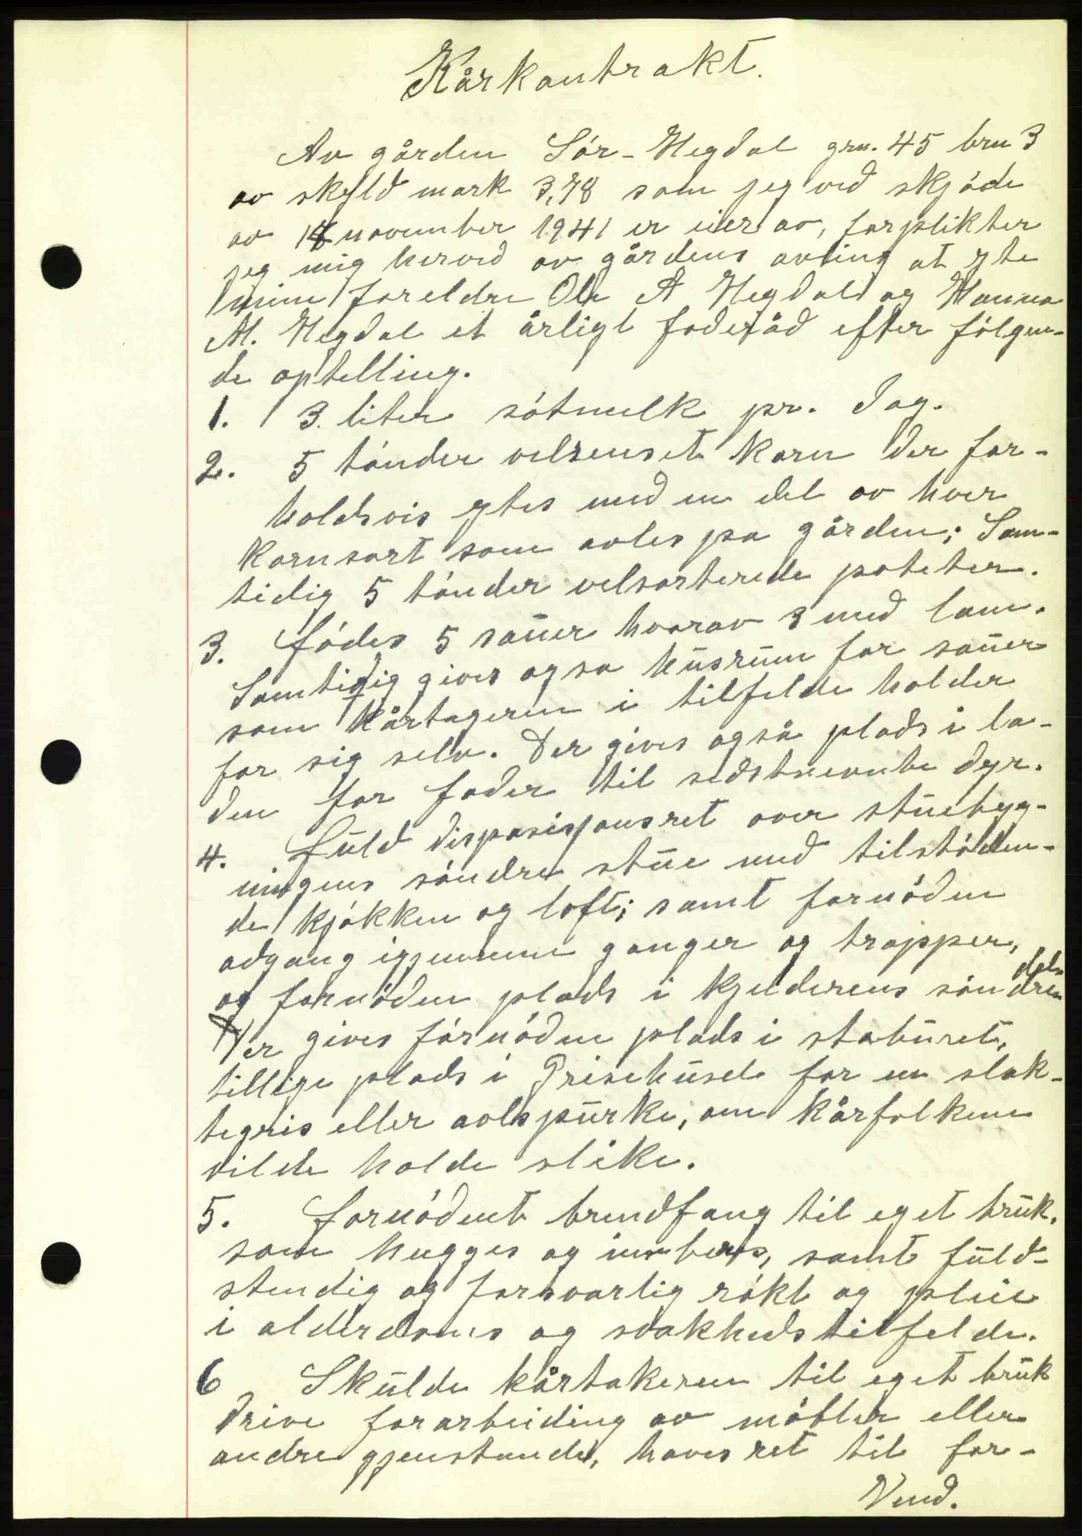 Kårkontrakt.
Av gården Sör-Hegdal grn. 45 brn 3
av skyld mark 3,78 som jeg ved skjöde
av 18 november 1941 er eier av, forplikter
jeg mig herved av gårdens avling at yte
mine foreldre Ole A Hegdal og Hanna
M. Hegdal et årligt foderåd efter fölgen-
de optelling.
1. 3 liter sötmelk pr. dag.
2. 5 tönder velrenset korn der for-
holdsvis ytes med en del av hver
kornsort som avles pa gården; Sam-
tidig 5 tönder velsorterede poteter.
3. Födes 5 sauer hvorav 3 med lam.
Samtidig gives ogsa husrum for sauer
som kårtageren i tilfelde holder
for sig selv. Der gives også plads i la-
den for foder til sidstnevnte dyr.
4. Fuld disposisjonsret over stuebyg-
ningens söndre stue med tilstöden-
de kjökken og loft; samt fornöden
adgang igjennem ganger og trapper,
og fornöden plads i kjelderens söndre del
Der gives fornöden plads i staburet,
tillige plads i Grisehuset for en slak-
tegris eller avlspurke, om kårfolkene
vilde holde slike.
5. Fornödent brendfang til eget bruk.
som hugges og innberes, samt fuld-
stendig og forsvarlig rökt og pleie
i alderdoms og svakhedstilfelde.
6 Skulde kårtakeren til eget bruk
drive forarbeiding av möbler eller
andre gjenstande, haves ret til for-
Vend.